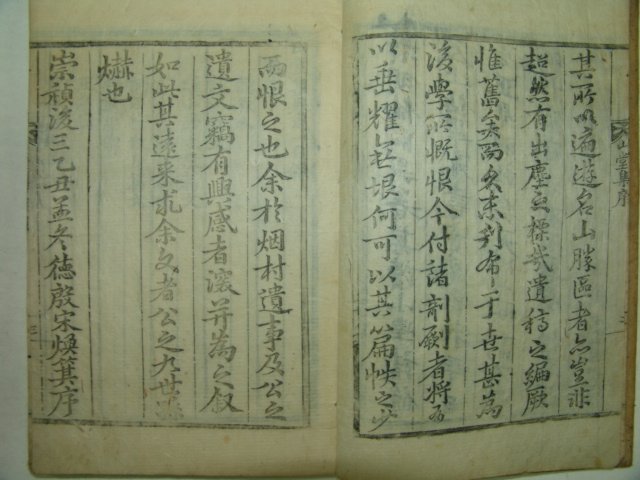 其所以遍遊名山勝區者亦豈非
超然有出塵之標哉遺稿之編厥
惟舊矣而久未刊布于世甚爲
後學所慨恨今付諸剞劂者將爲
以垂耀無垠何可以其篇帙之少
而恨之也余於烟村遺事及公之
遺文竊有興感者滾并爲之叙
如此其遠來求余文者公之九世孫
爀也
崇禎後三乙丑孟冬德殷宋煥箕序